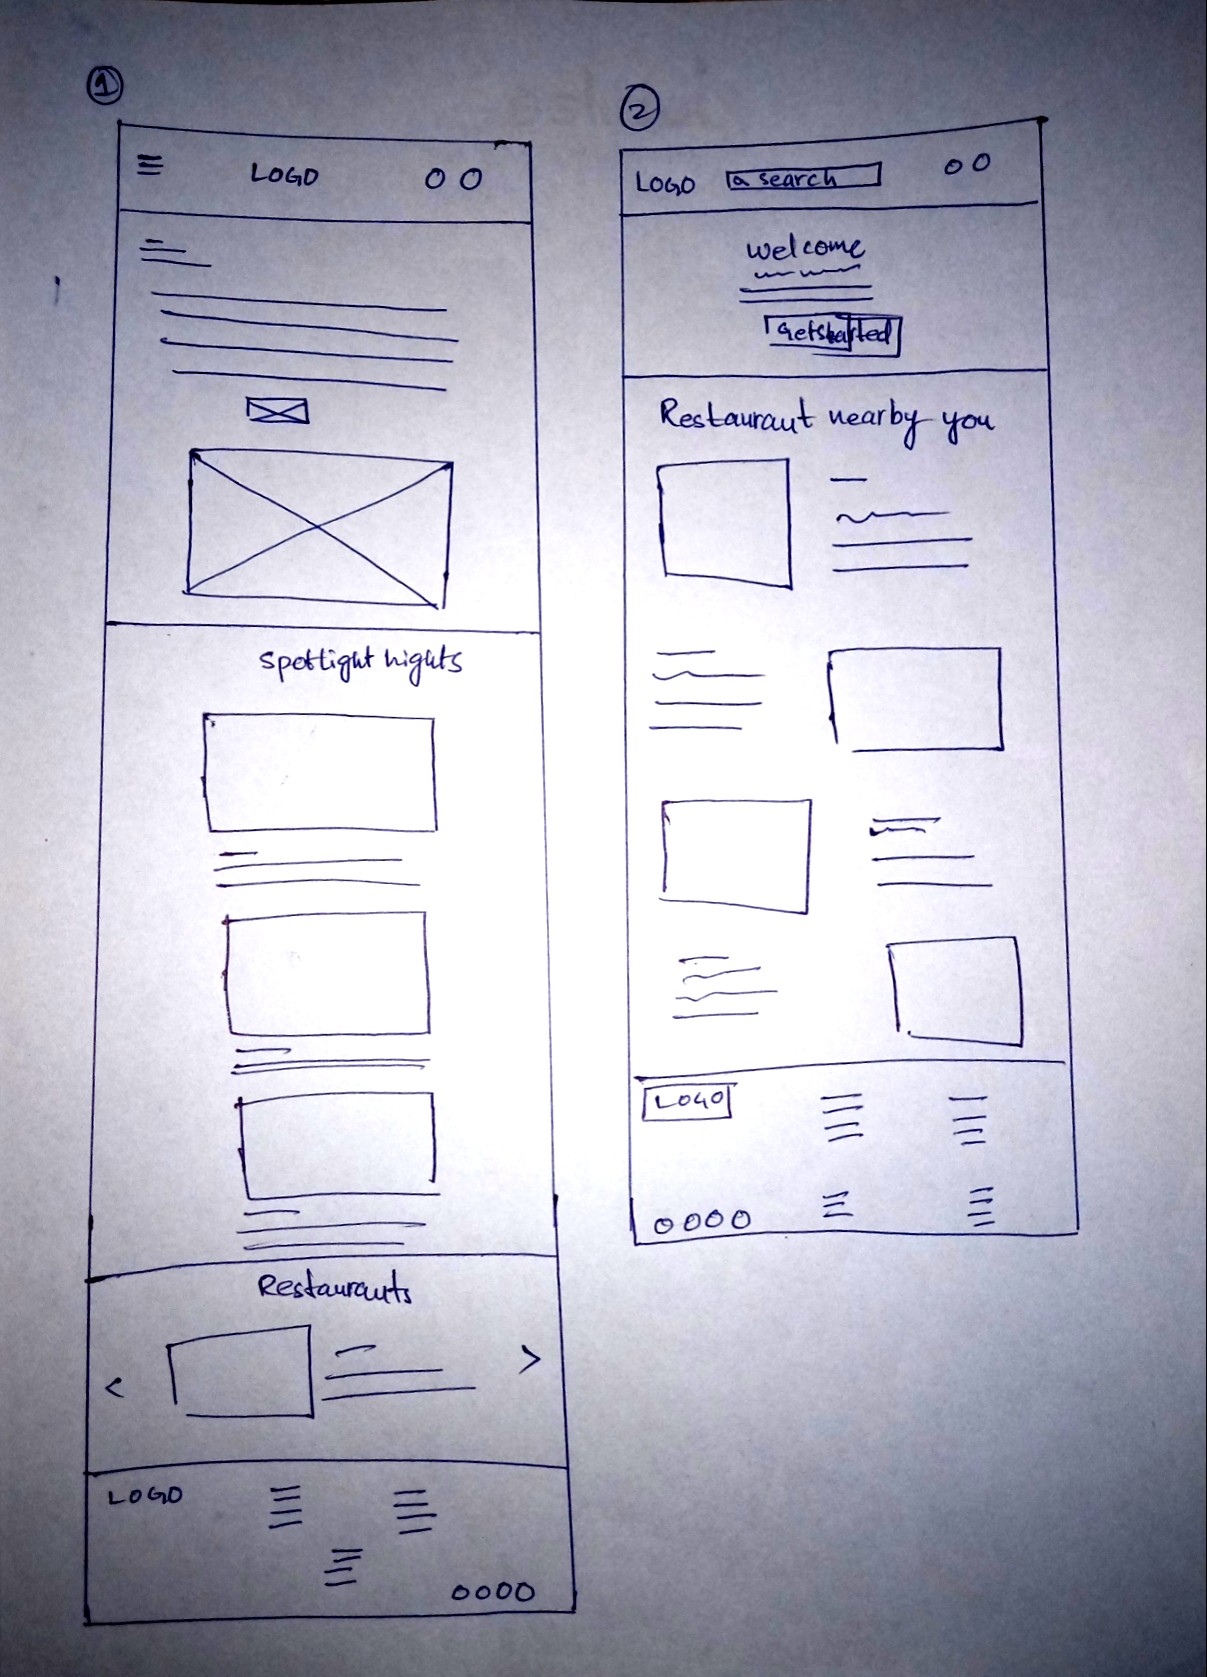 1
LOGO
spotlight nights
Restaurants
<
>
LOGO
2
LOGO
search
welcome
Get Started
Restaurant nearby you
LOGO